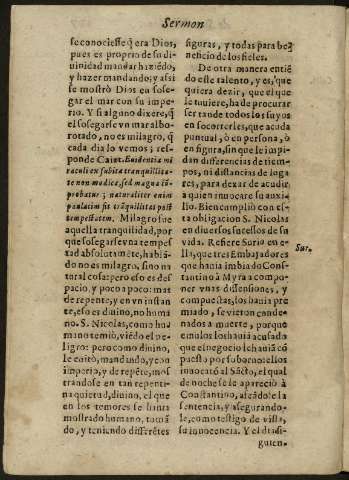 Sermon
se conociesse q̃ era Dios,
pues es proprio de su di-
uinidad mandar haziẽdo,
y hazer mandando; y assi
se mostrò Dios en sose-
gar el mar con su impe-
rio. Y si alguno dixere, q̃
el sosegarse vn mar albo-
rotado, no es milagro, q̃
cada dia lo vemos; res-
ponde Caiet. Euidentia mi
raculi ex subita tranquillita-
te non modica, sed magna cõ-
probatur; naturaliter enim
paulatim fit trãquillitas post
tempestatem. Milagro fue
aquella tranquilidad, por
que sosegarse vna tempes
tad absolutamẽte, hablã-
do no es milagro, sino na
tural cosa: pero eso es des
pacio, y poco a poco: mas
de repente, y en vn instan
te, eso es diuino, no huma
no. S. Nicolas, como hu
mano temiò, viẽdo el pe-
ligro: pero como diuino,
le euitò, mandando, y con
imperio, y de repẽte, mos
trandose en tan repenti-
na quietud, diuino, el que
en los temores se hauia
mostrado humano, tomã
do, y teniendo diferẽtes
figuras, y todas para be-
neficio de los fieles.
De otra manera entiẽ
do este talento, y es, que
quiera dezir, que el que
le tuuiere, ha de procurar
ser tan de todos los suyos
en socorrerles, que acuda
puntual, ò en persona, ò
en figura, sin que le impi-
dan diferencias de tiem-
pos, ni distancias de luga
res, para dexar de acudir
a quien inuocare su auxi-
lio. Bien cumpliò con es-
ta obligacion S. Nicolas
en diuersos sucessos de su
vida. Refiere Surio en e-
lla, que tres Embajadores
que hauia imbiado Cons
tantino à Myra a compo
ner vnas dissensiones, y
compuestas, los hauia pre
miado, se vieron conde-
nados a muerte, porque
emulos los hauiã acusado
que el negocio le hauiã cõ
puesto por soborno: ellos
inuocarõ al Sãcto, el qual
de noche se le apareciò à
Constantino, afeãdole la
sentencia, y asegurando-
le, como testigo de vista,
su innocencia. Y el dia si-
guien-
Sur.